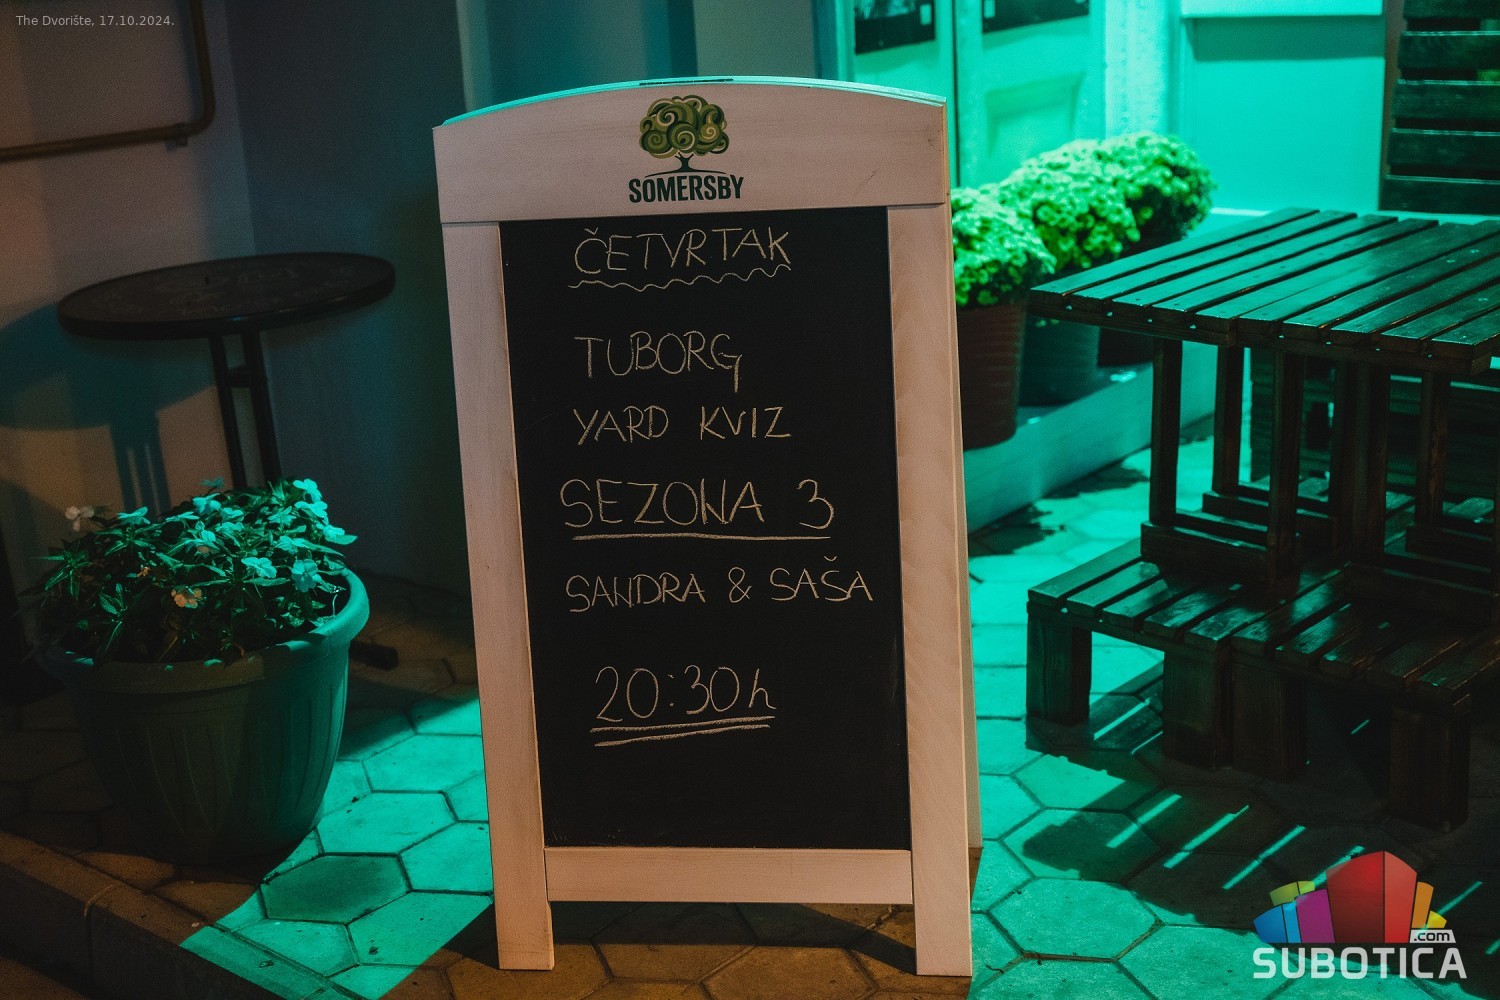 The Dvorište, 17.10.2024.
SOMERSBY
ČETVRTAK
TUBORG
YARD KVIZ
SEZONA 3
SANDRA & SAŠA
20:30h
.com
SUBOTICA